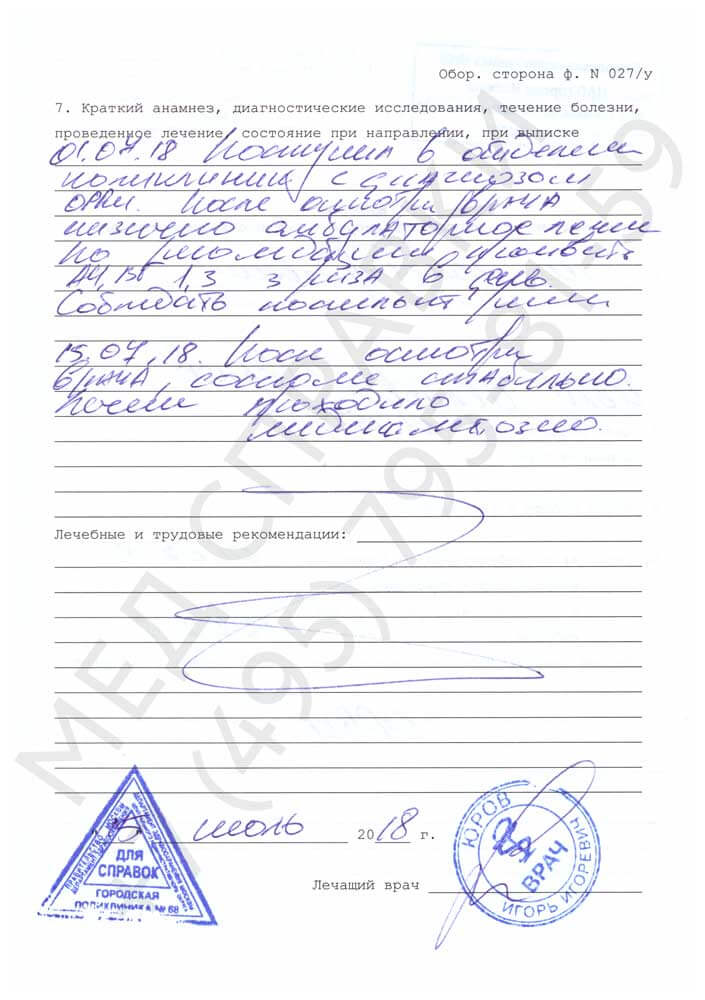 Обор. сторона ф. N 027/у
7. Краткий анамнез, диагностические исследования, течение болезни,
проведенное лечение, состояние при направлении, при выписке
01.07.18 Поступил в отделение
поликлиники с диагнозом
ОРВИ. После осмотра врача
назначено амбулаторное лечение
по
1,3 3 раза в день.
Соблюдать постельный режим
15.07.18. После осмотра
врача, состояние стабильно.
Лечение проходило
медикаментозно.
Лечебные и трудовые рекомендации:
МЕД СПРАВКИ
(495) 795-81-59
15 июль 2018 г.
Лечащий врач
ДЛЯ
СПРАВОК
ГОРОДСКАЯ
ПОЛИКЛИНИКА № 68
ЮРОВ
ИГОРЬ ИГОРЕВИЧ
ВРАЧ